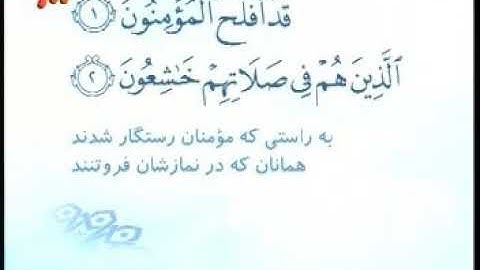 قَدْ أَفْلَحَ الْمُؤْمِنُونَ ١
الَّذِينَ هُمْ فِي صَلَاتِهِمْ خَاشِعُونَ ٢
به راستی که مؤمنان رستگار شدند
همانان که در نمازشان فروتنند